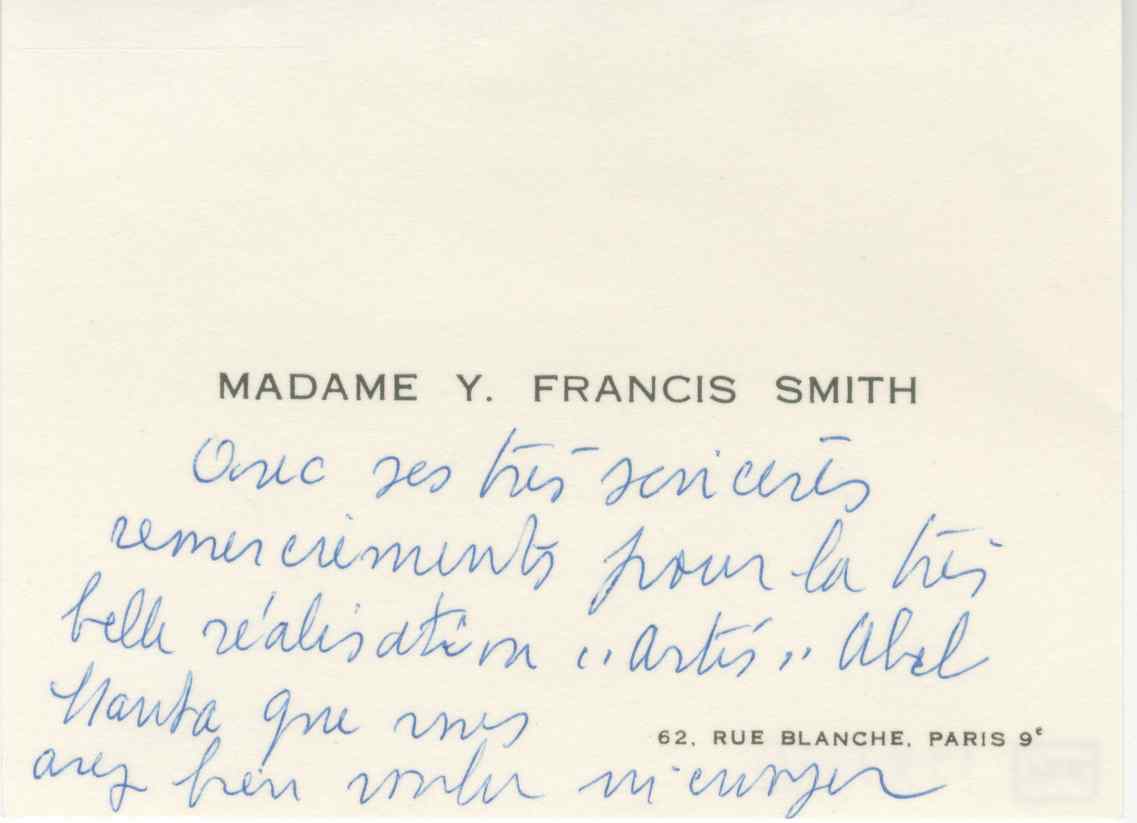 MADAME Y. FRANCIS SMITH
Avec ses très sincères
remerciements pour la très
belle réalisation "Artis" Abel
que vous
62, RUE BLANCHE, PARIS 9e
avez bien voulu m'envoyer